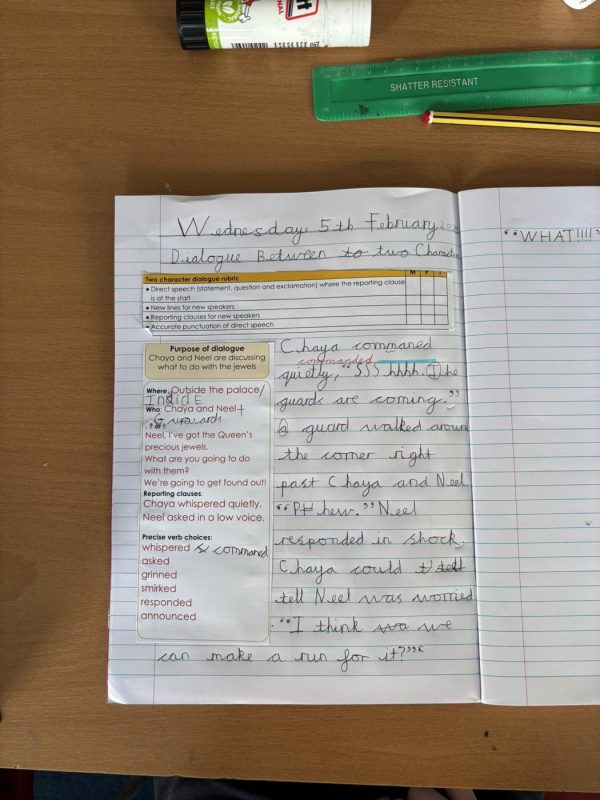 SHATTER RESISTANT
Wednesday 5th February
Dialogue Between to two
"WHAT!!!!"
Two character dialogue rubric
M P I
• Direct speech (statement, question and exclamation) where the reporting clause
is at the start
• New lines for new speakers
• Reporting clauses for new speakers
• Accurate punctuation of direct speech
Purpose of dialogue
Chaya and Neel are discussing
what to do with the jewels
Where: Outside the palace/
InsidE
Who Chaya and Neel+
Neel, I've got the Queen's
precious jewels.
What are you going to do
with them?
We're going to get found out!
Reporting clauses:
Chaya whispered quietly,
Neel asked in a low voice,
Precise verb choices:
whispered & command
asked
grinned
smirked
responded
announced
Chaya commaned
commanded
quietly, "SSShhhh. The
guards are coming."
a guard walked aroun
the corner right
past Chaya and Neel.
"Pthew." Neel
responded in shock.
Chaya could tell
tell Neel was worried
"I think we
can make a run for it?"